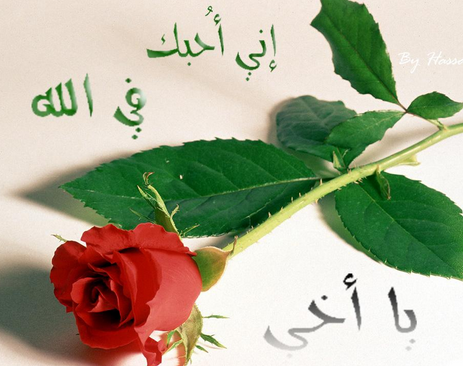 إني أُحبك
في الله
By Hosse
يا أخي